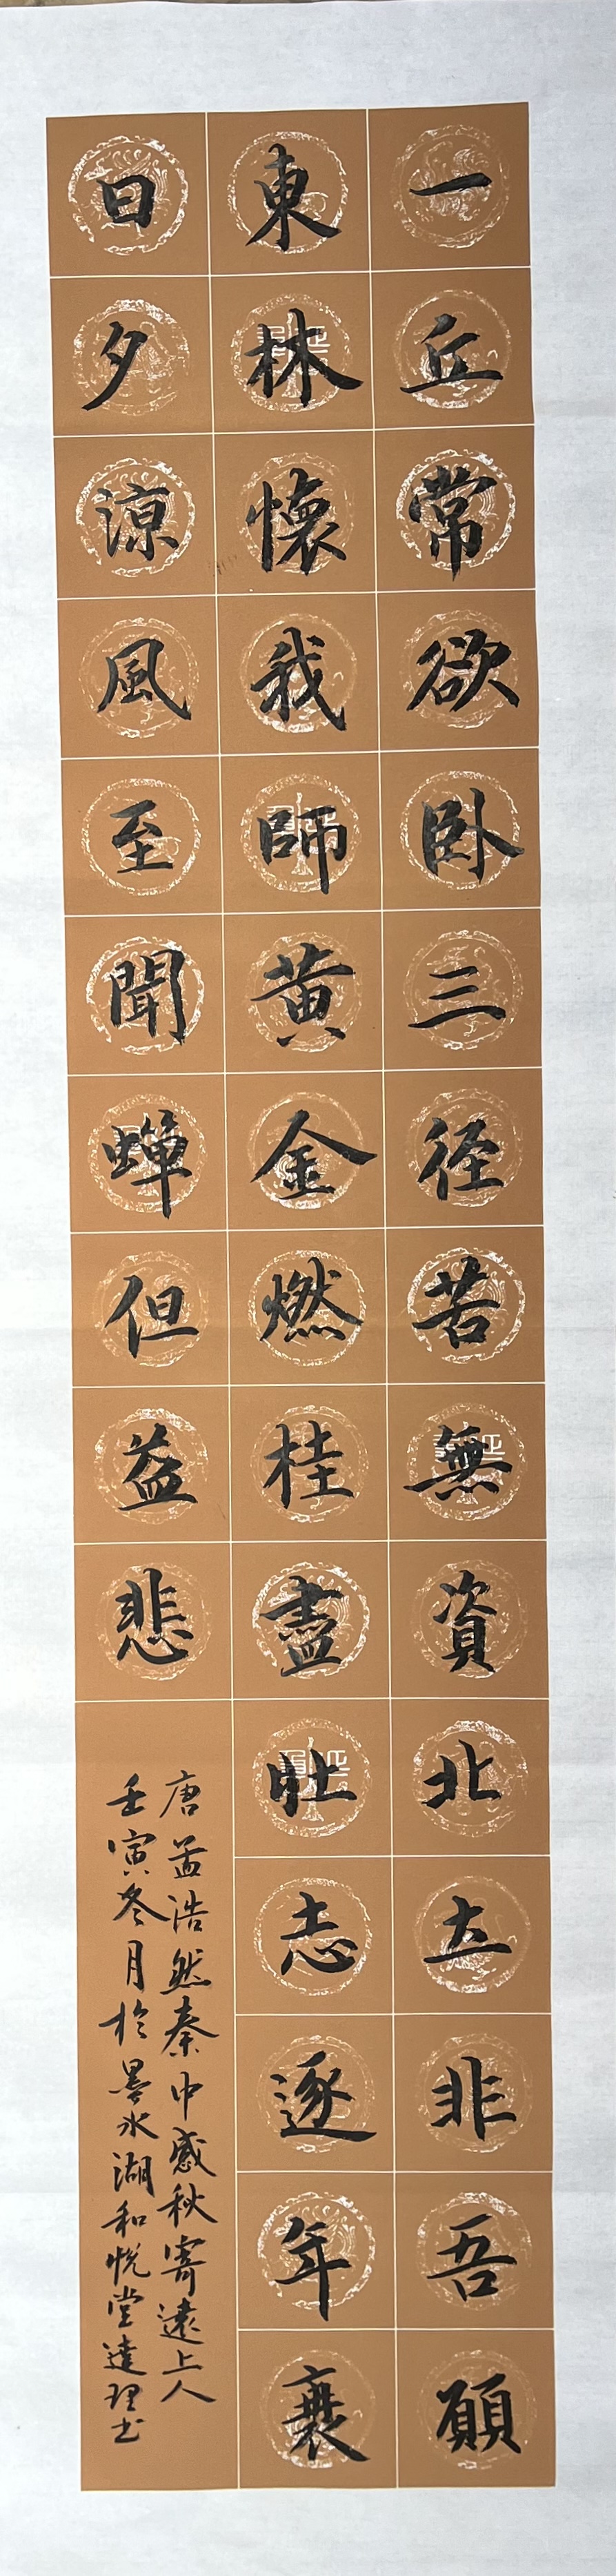 一丘常欲卧三径苦無資北土非吾願
東林懷我師黄金燃桂盡壮志逐年衰
日夕涼風至聞蟬但益悲
唐孟浩然秦中感秋寄遠上人
壬寅冬月於墨水湖和悦堂達理书